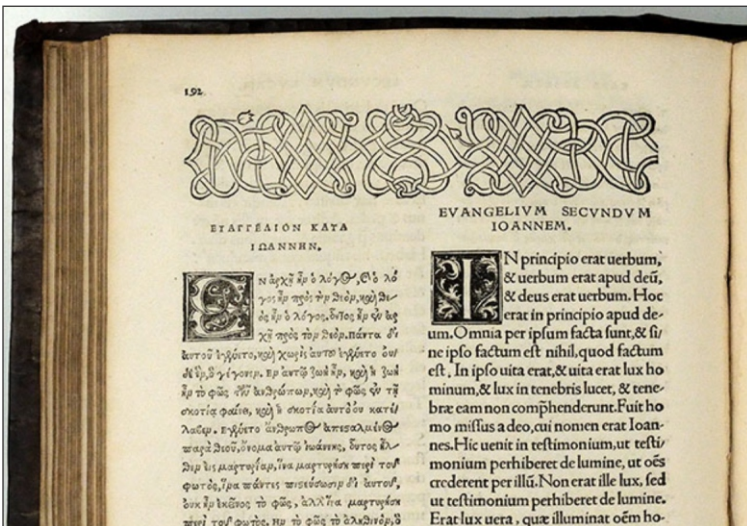 192
ΕΥΑΓΓΕΛΙΟΝ ΚΑΤΑ
ΙΩΑΝΝΗΝ.
ΕΝ ἀρχῇ ἦν ὁ λόγος, καὶ ὁ λό
γος ἦν πρὸς τὸν θεόν, καὶ θε-
ὸς ἦν ὁ λόγος. οὗτος ἦν ἐν ἀρ
χῇ πρὸς τὸν θεόν. πάντα δι
αυτοῦ ἐγένετο, καὶ χωρὶς αυτοῦ ἐγένετο ου/
δὲ ἕν, ὃ γέγονεν. Εν αντῷ ζωὴ ἦν, καὶ ἡ ζωὴ
ἦν τὸ φῶς τῶν ἀνθρώπων, καὶ τὸ φῶς ἐν τῇ
σκοτίᾳ φαίνει, καὶ ἡ σκοτία ἀυτὸ ου κατέ/
λαβεν. Εγένετο ἄνθρωπος ἀπεσαλμένος
παρὰ θεοῦ, ὄνομα ἀυτῷ Ιωάννης, οὗτος ἦλ-
θεν εἰς μαρτυρίαν, ἵνα μαρτυρήσῃ περὶ τοῦ
φωτός, ἵνα πάντες πιστεύσωσιν δι αυτοῦ,
ουκ ἦν ἐκεῖνος τὸ φῶς, ἀλλ ἵνα μαρτυρήσῃ
περὶ τοῦ φωτός. Ην τὸ φῶς τὸ ἀληθινόν, ὃ
EVANGELIVM SECVNDVM
IOANNEM.
IN principio erat uerbum,
& uerbum erat apud deũ,
& deus erat uerbum. Hoc
erat in principio apud de-
um. Omnia per ipsum facta sunt, & si/
ne ipso factum est nihil, quod factum
est. In ipso uita erat, & uita erat lux ho
minum, & lux in tenebris lucet, & tene-
bræ eam non comp̃henderunt. Fuit ho
mo missus a deo, cui nomen erat Ioan-
nes. Hic uenit in testimonium, ut testi/
monium perhiberet de lumine, ut oẽs
crederent per illũ. Non erat ille lux, sed
ut testimonium perhiberet de lumine.
Erat lux uera, quæ illuminat oẽm ho-